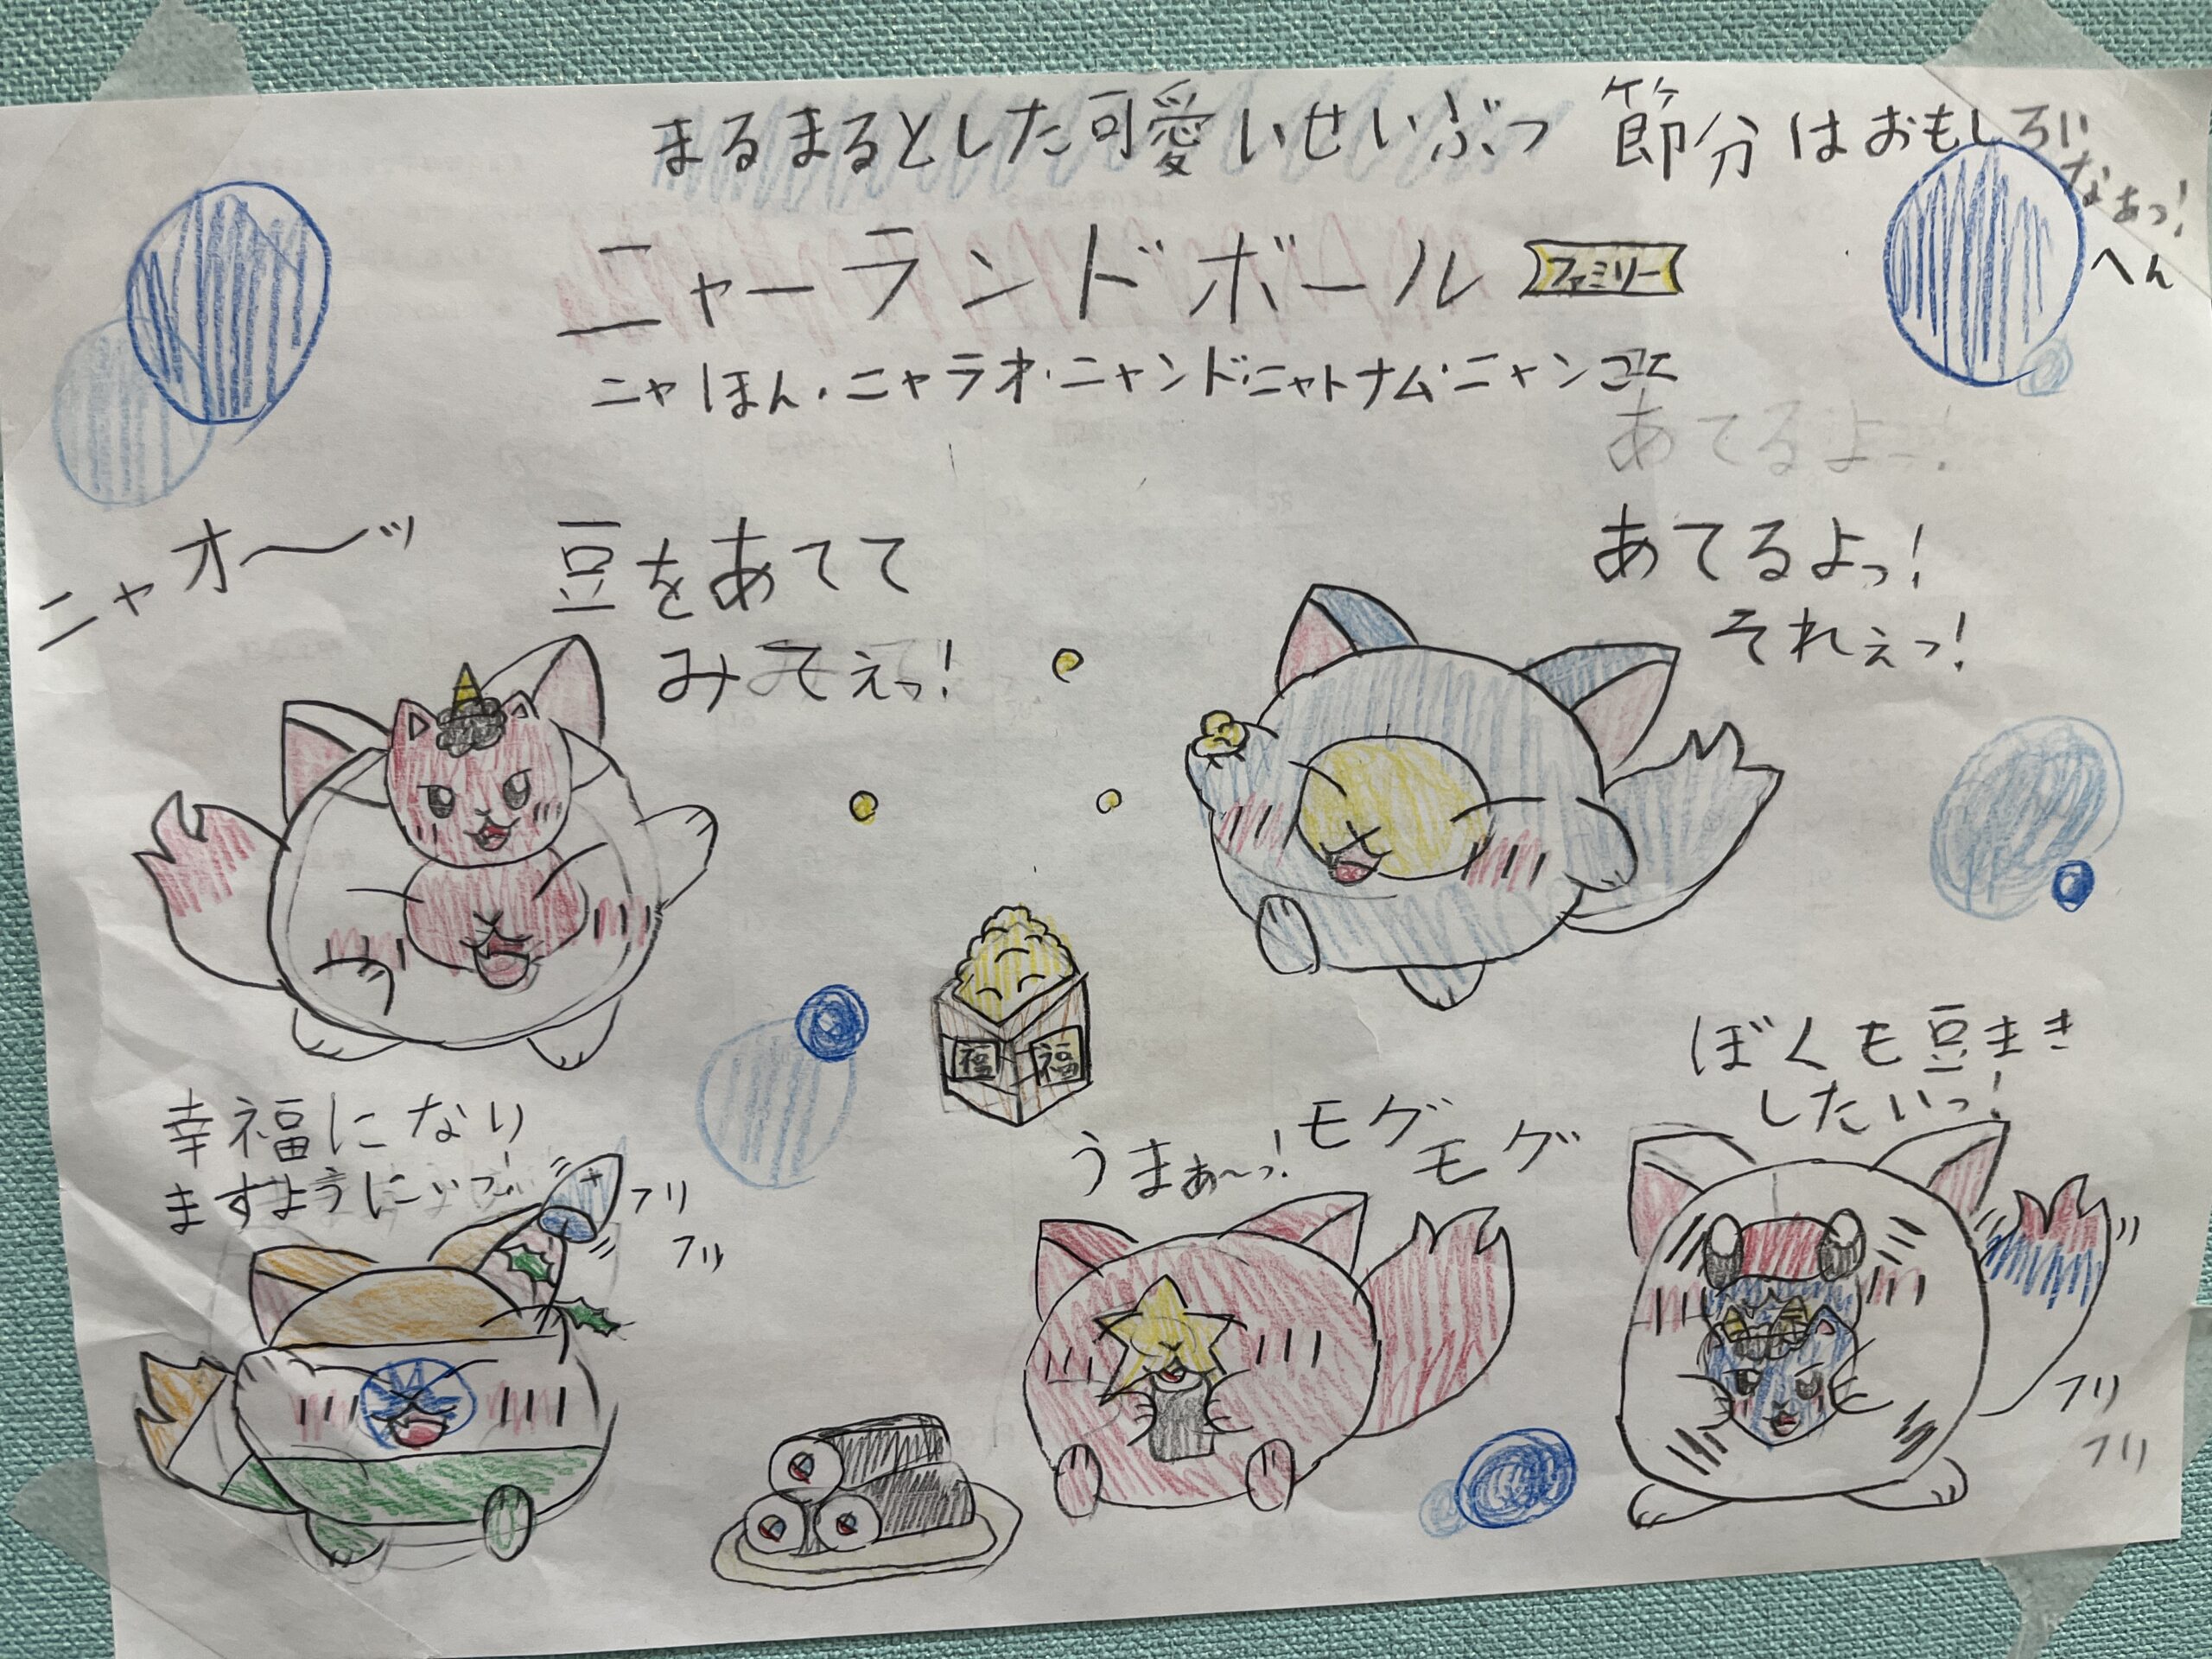 まるまるとした可愛いせいぶつ 節分はおもしろい
なぁっ!
へん
ニャーランドボール ファミリー
ニャほん・ニャラオ・ニャンド・ニャトナム・ニャンゴエ
あてるよっ!
ニャオ〜ッ
豆をあてて
みてぇっ!
あてるよっ!
それぇっ!
福 福
ぼくも豆まき
したいっ!
幸福になり
ますようにいっ!
フリ
フリ
うまぁ〜っ!
モグ
モグ
フリ
フリ